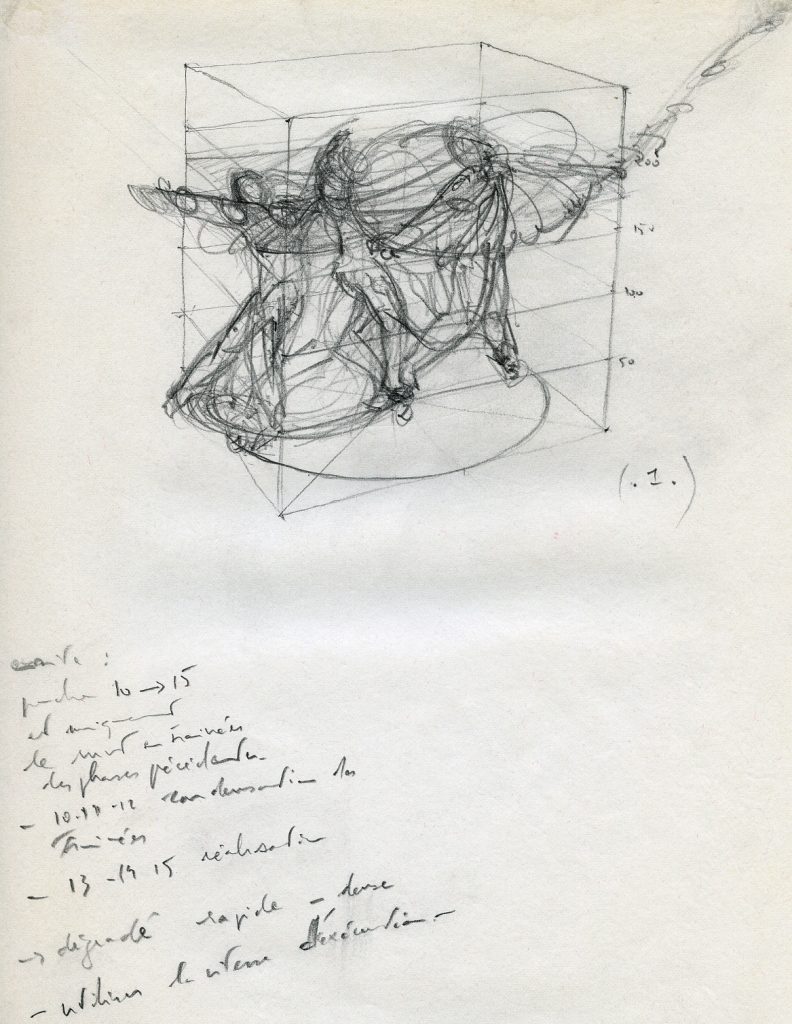 200
150
100
50
(.1.)
ensuite :
prendre 10 → 15
et uniquement
le mvt en trainées
des phases précédentes.
- 10.11-12 condensation des
trainées
- 13 -14 15 réalisation
→ dégradé rapide - dense
- utiliser la vitesse d'exécution -